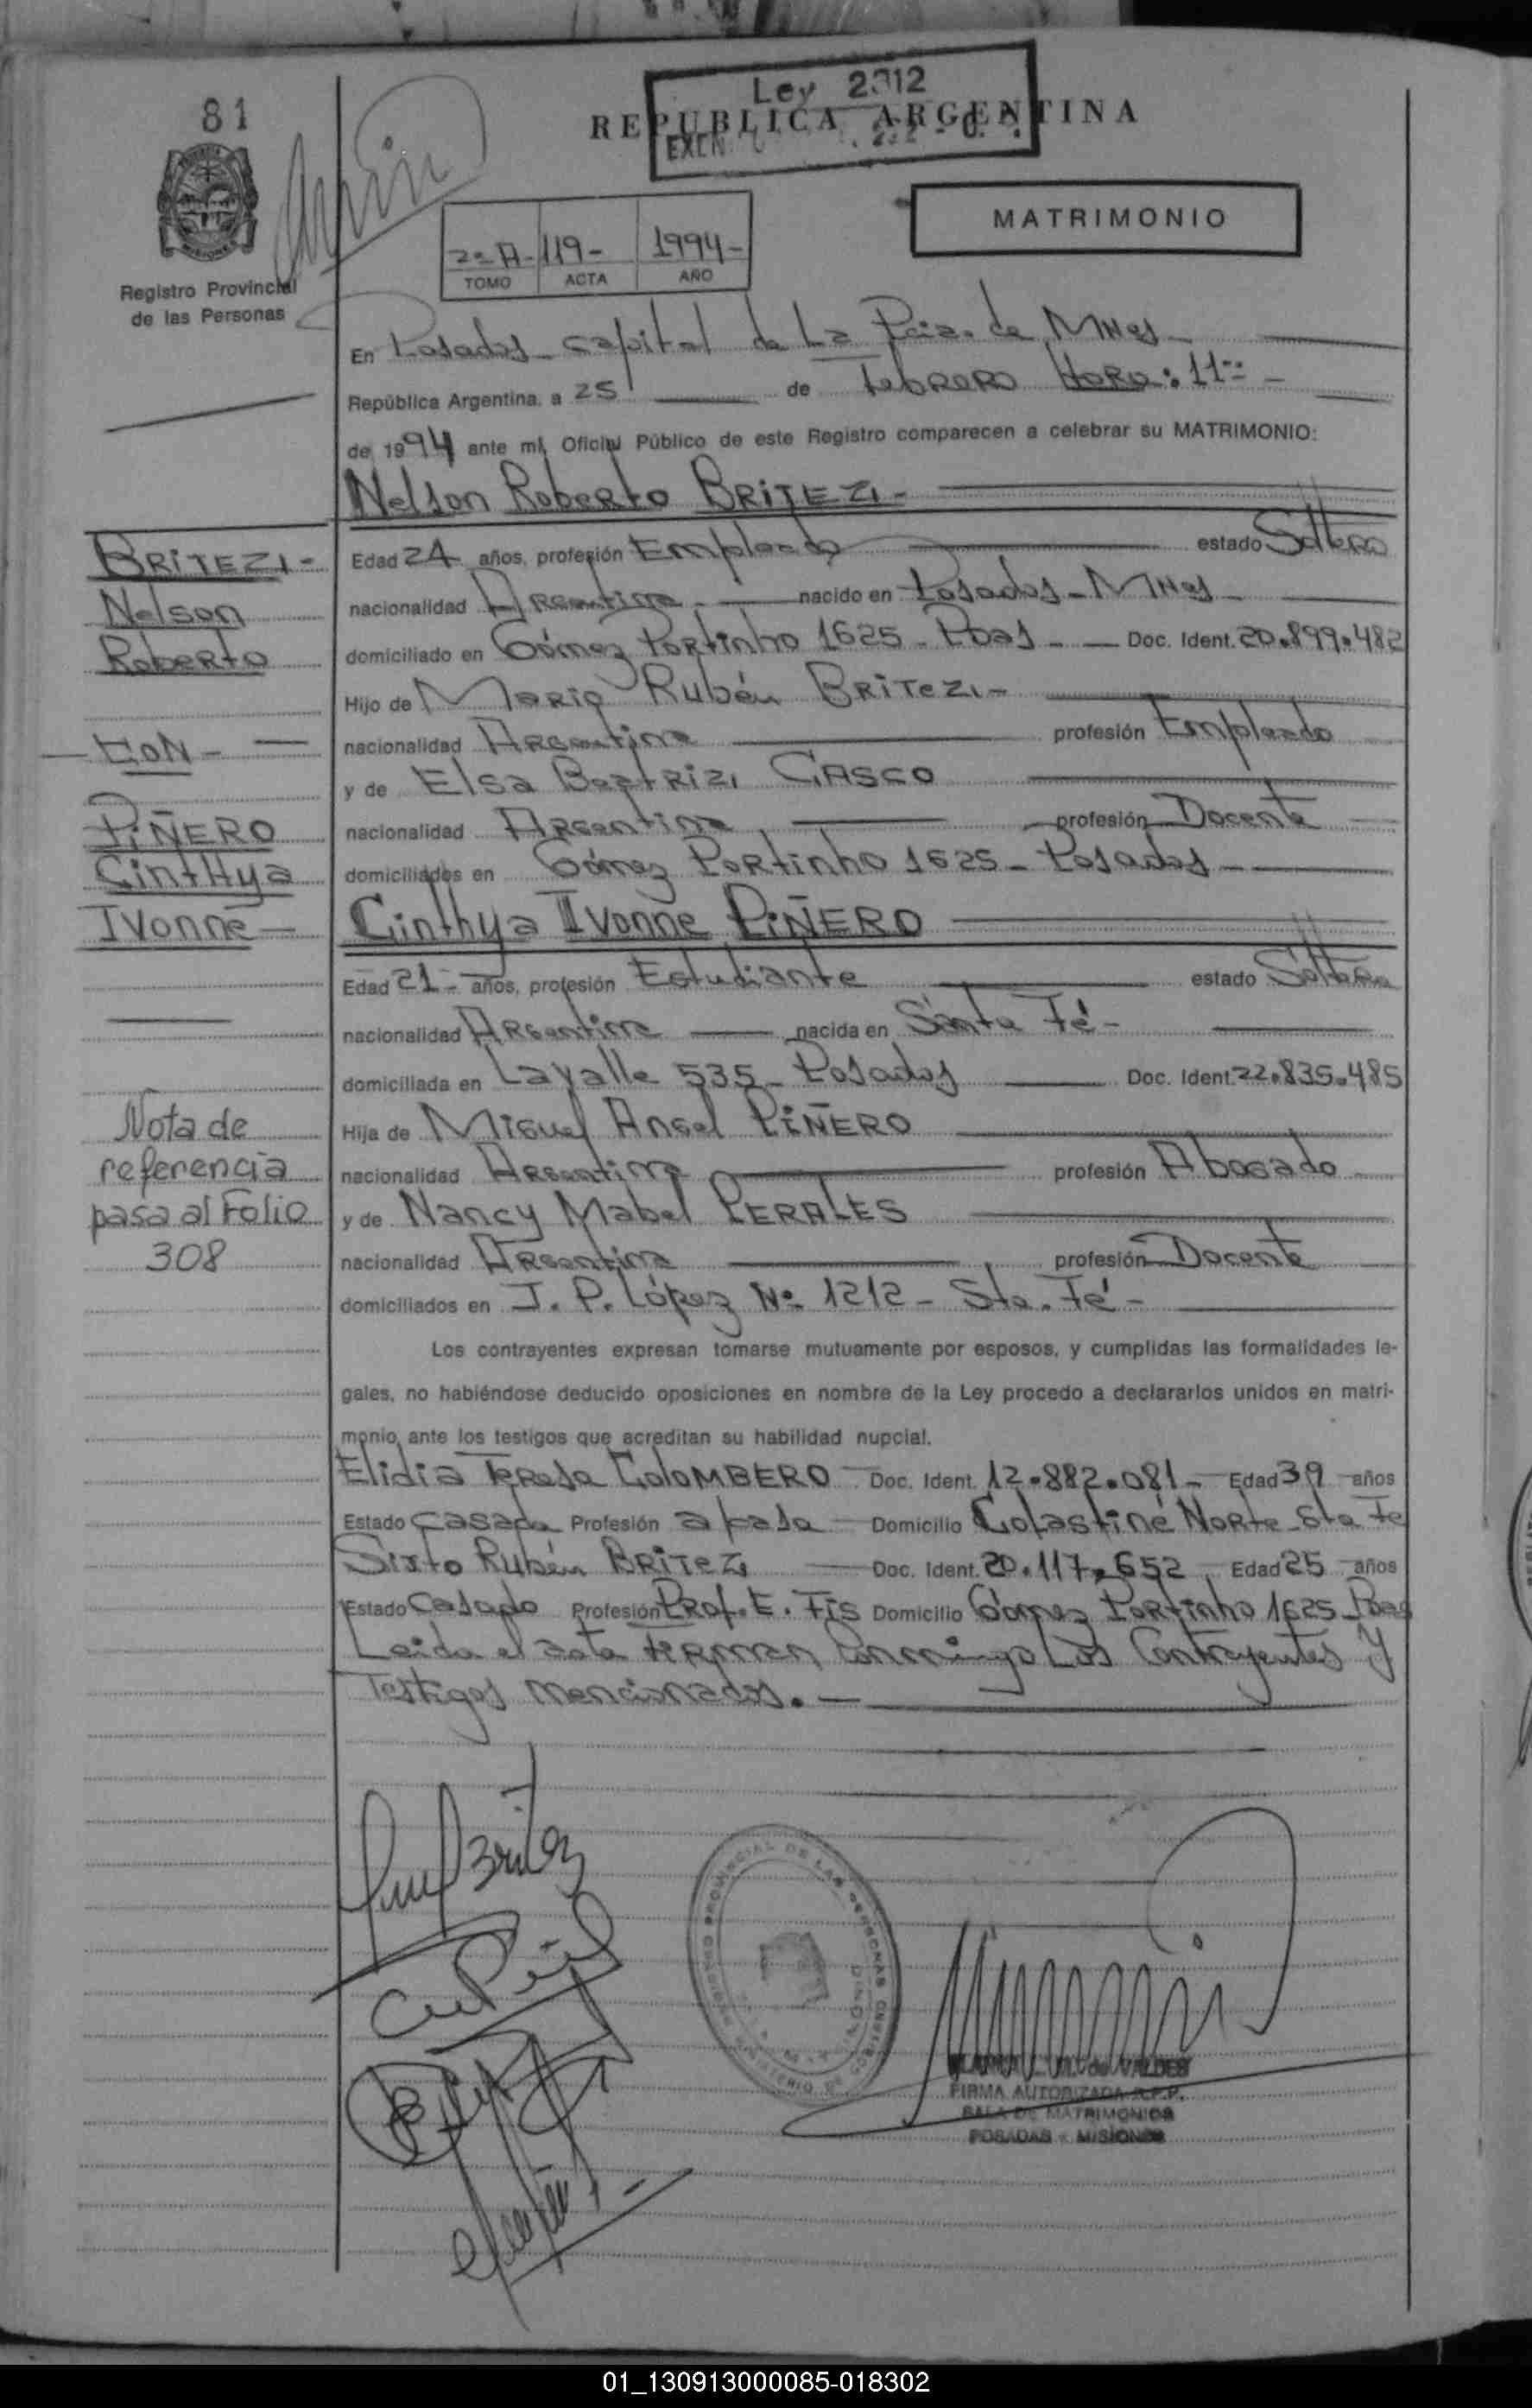 81
Ley 2312
REPUBLICA ARGENTINA
MATRIMONIO
2º A - 119 - 1994 -
TOMO ACTA AÑO
Registro Provincial
de las Personas
En Posadas - Capital de La Pcia. de Mnes -
República Argentina, a 25 de Febrero Hora: 11
de 1994 ante mí, Oficial Público de este Registro comparecen a celebrar su MATRIMONIO:
Nelson Roberto BRITEZ -
Edad 24 años, profesión Empleado estado Soltero
nacionalidad Argentina nacido en Posadas - Mnes
domiciliado en Gómez Portinho 1625 - Pdas - Doc. Ident. 20.899.482
Hijo de Mario Rubén BRITEZ -
nacionalidad Argentina profesión Empleado
y de Elsa Beatriz GASCO
nacionalidad Argentina profesión Docente
domiciliados en Gómez Portinho 1625 - Posadas -
Cinthya Ivonne PIÑERO
Edad 21 - años, profesión Estudiante estado Soltera
nacionalidad Argentina nacida en Santa Fé -
domiciliada en Lavalle 535 - Posadas Doc. Ident. 22.835.485
Hija de Miguel Angel PIÑERO
nacionalidad Argentina profesión Abogado
y de Nancy Mabel PERALES
nacionalidad Argentina profesión Docente
domiciliados en J. P. López Nº 1212 - Sta. Fé -
Los contrayentes expresan tomarse mutuamente por esposos, y cumplidas las formalidades le-
gales, no habiéndose deducido oposiciones en nombre de la Ley procedo a declararlos unidos en matri-
monio, ante los testigos que acreditan su habilidad nupcial.
Elidia Teresa COLOMBERO - Doc. Ident. 12.882.081 - Edad 39 años
Estado Casada Profesión a casa Domicilio Colastiné Norte - Sta Fe
Sixto Rubén BRITEZ Doc. Ident. 20.117.652 Edad 25 años
Estado Casado Profesión Prof. E. Fís Domicilio Gómez Portinho 1625 - Pdas
Leida el acta firman conmigo Los Contrayentes y
Testigos mencionados. -
BRITEZ -
Nelson
Roberto
CON -
PIÑERO
Cinthya
Ivonne -
Nota de
referencia
pasa al Folio
308
FIRMA AUTORIZADA R.P.P.
SALA DE MATRIMONIOS
POSADAS - MISIONES
01_130913000085-018302